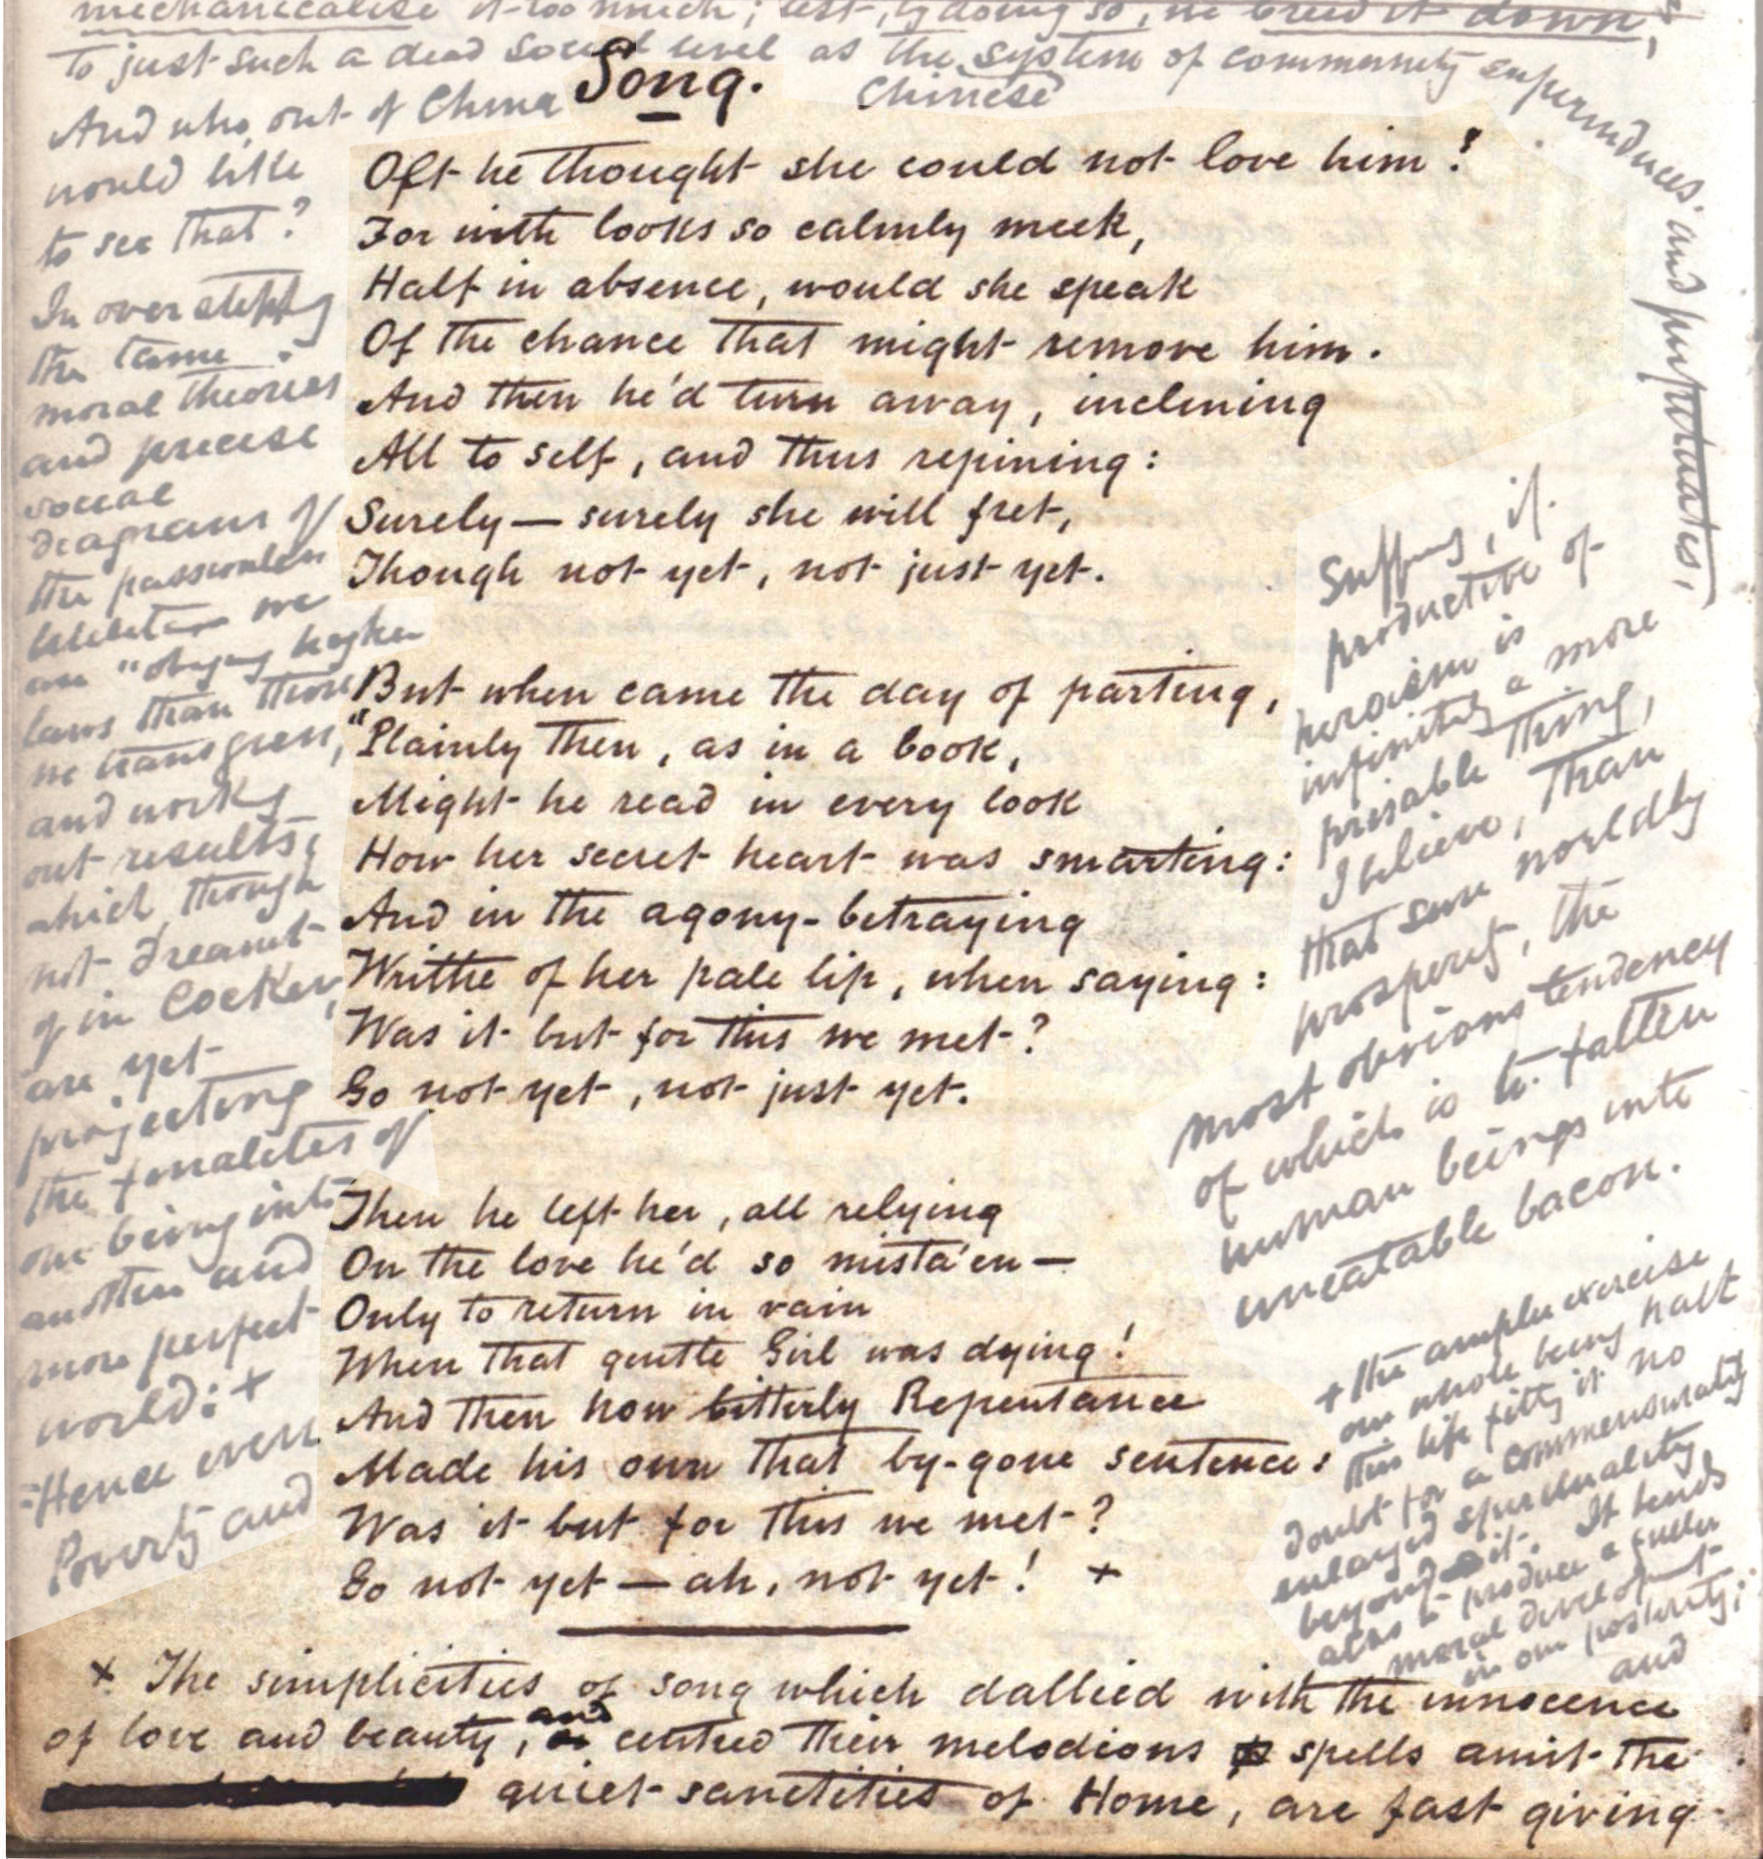 mechanicalise it too much; lest, by doing so, we breed it down,
to just such a dead social level as the system of community superinduces and perpetuates,
Chinese
And who, out of China
would like
to see that?
In overstepping
the tame
moral theories
and precise
social
diagrams of
the passionless
we
are "obeying higher
laws than those
we transgress,"
and working
out results,
which though
not dreamt
of in Cocker,
are yet
projecting
the finalities of
our being into
another and
more perfect
world: +
Hence even
Poverty and
Suffering, if
productive of
heroism is
infinitely a more
prizable thing,
I believe, than
that sure worldly
prosperity, the
most obvious tendency
of which is to fatten
human beings into
uneatable bacon.
+ the ampler exercise
our whole being hath
this life fitting it no
doubt for a commensurately
enlarged spirituality
beyond it. It tends
also to produce a fuller
moral development
in our posterity;
and
Song.
Oft he thought she could not love him!
For with looks so calmly meek,
Half in absence, would she speak
Of the chance that might remove him.
And then he'd turn away, inclining
All to self, and thus repining:
Surely — surely she will fret,
Though not yet, not just yet.
But when came the day of parting,
Plainly then, as in a book,
Might he read in every look
How her secret heart was smarting:
And in the agony-betraying
Writhe of her pale lip, when saying:
Was it but for this we met?
Go not yet, not just yet.
Then he left her, all relying
On the love he'd so mista'en —
Only to return in vain
When that gentle Girl was dying!
And then how bitterly Repentance
Made his own that by-gone sentence:
Was it but for this we met?
Go not yet — ah, not yet! +
+ The simplicities of song which dallied with the innocence
of love and beauty, and centred their melodious spells amit the
quiet sanctities of Home, are fast giving